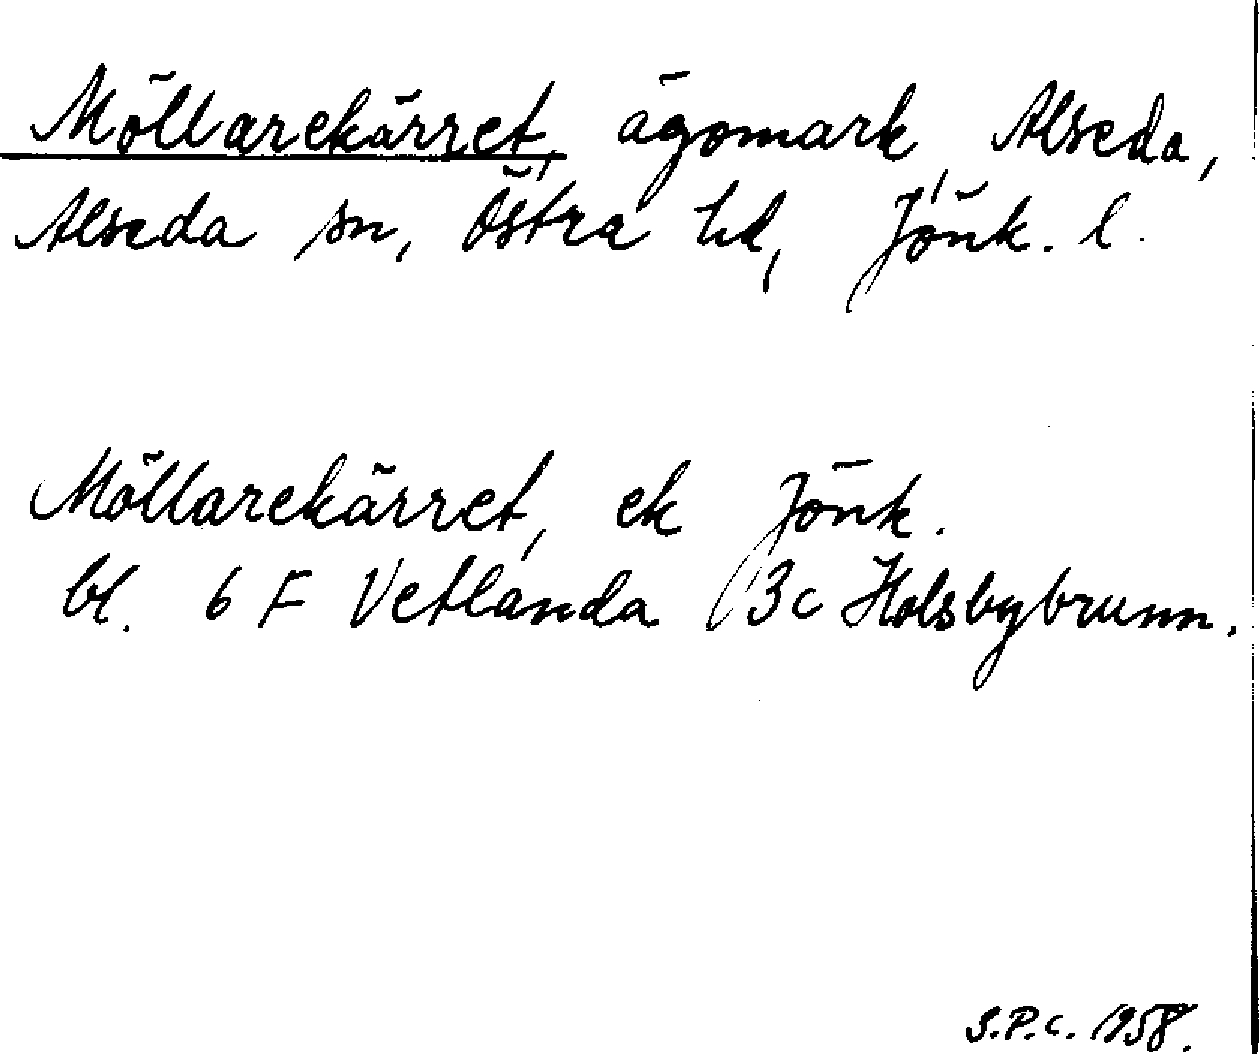 Möllarekärret, ägomark, Alseda,
Alseda sn, Östra hd, Jönk. l.
Möllarekärret, ek Jönk.
bl. 6 F Vetlanda (3c Holsbybrunn.
S.P.C. 1958.